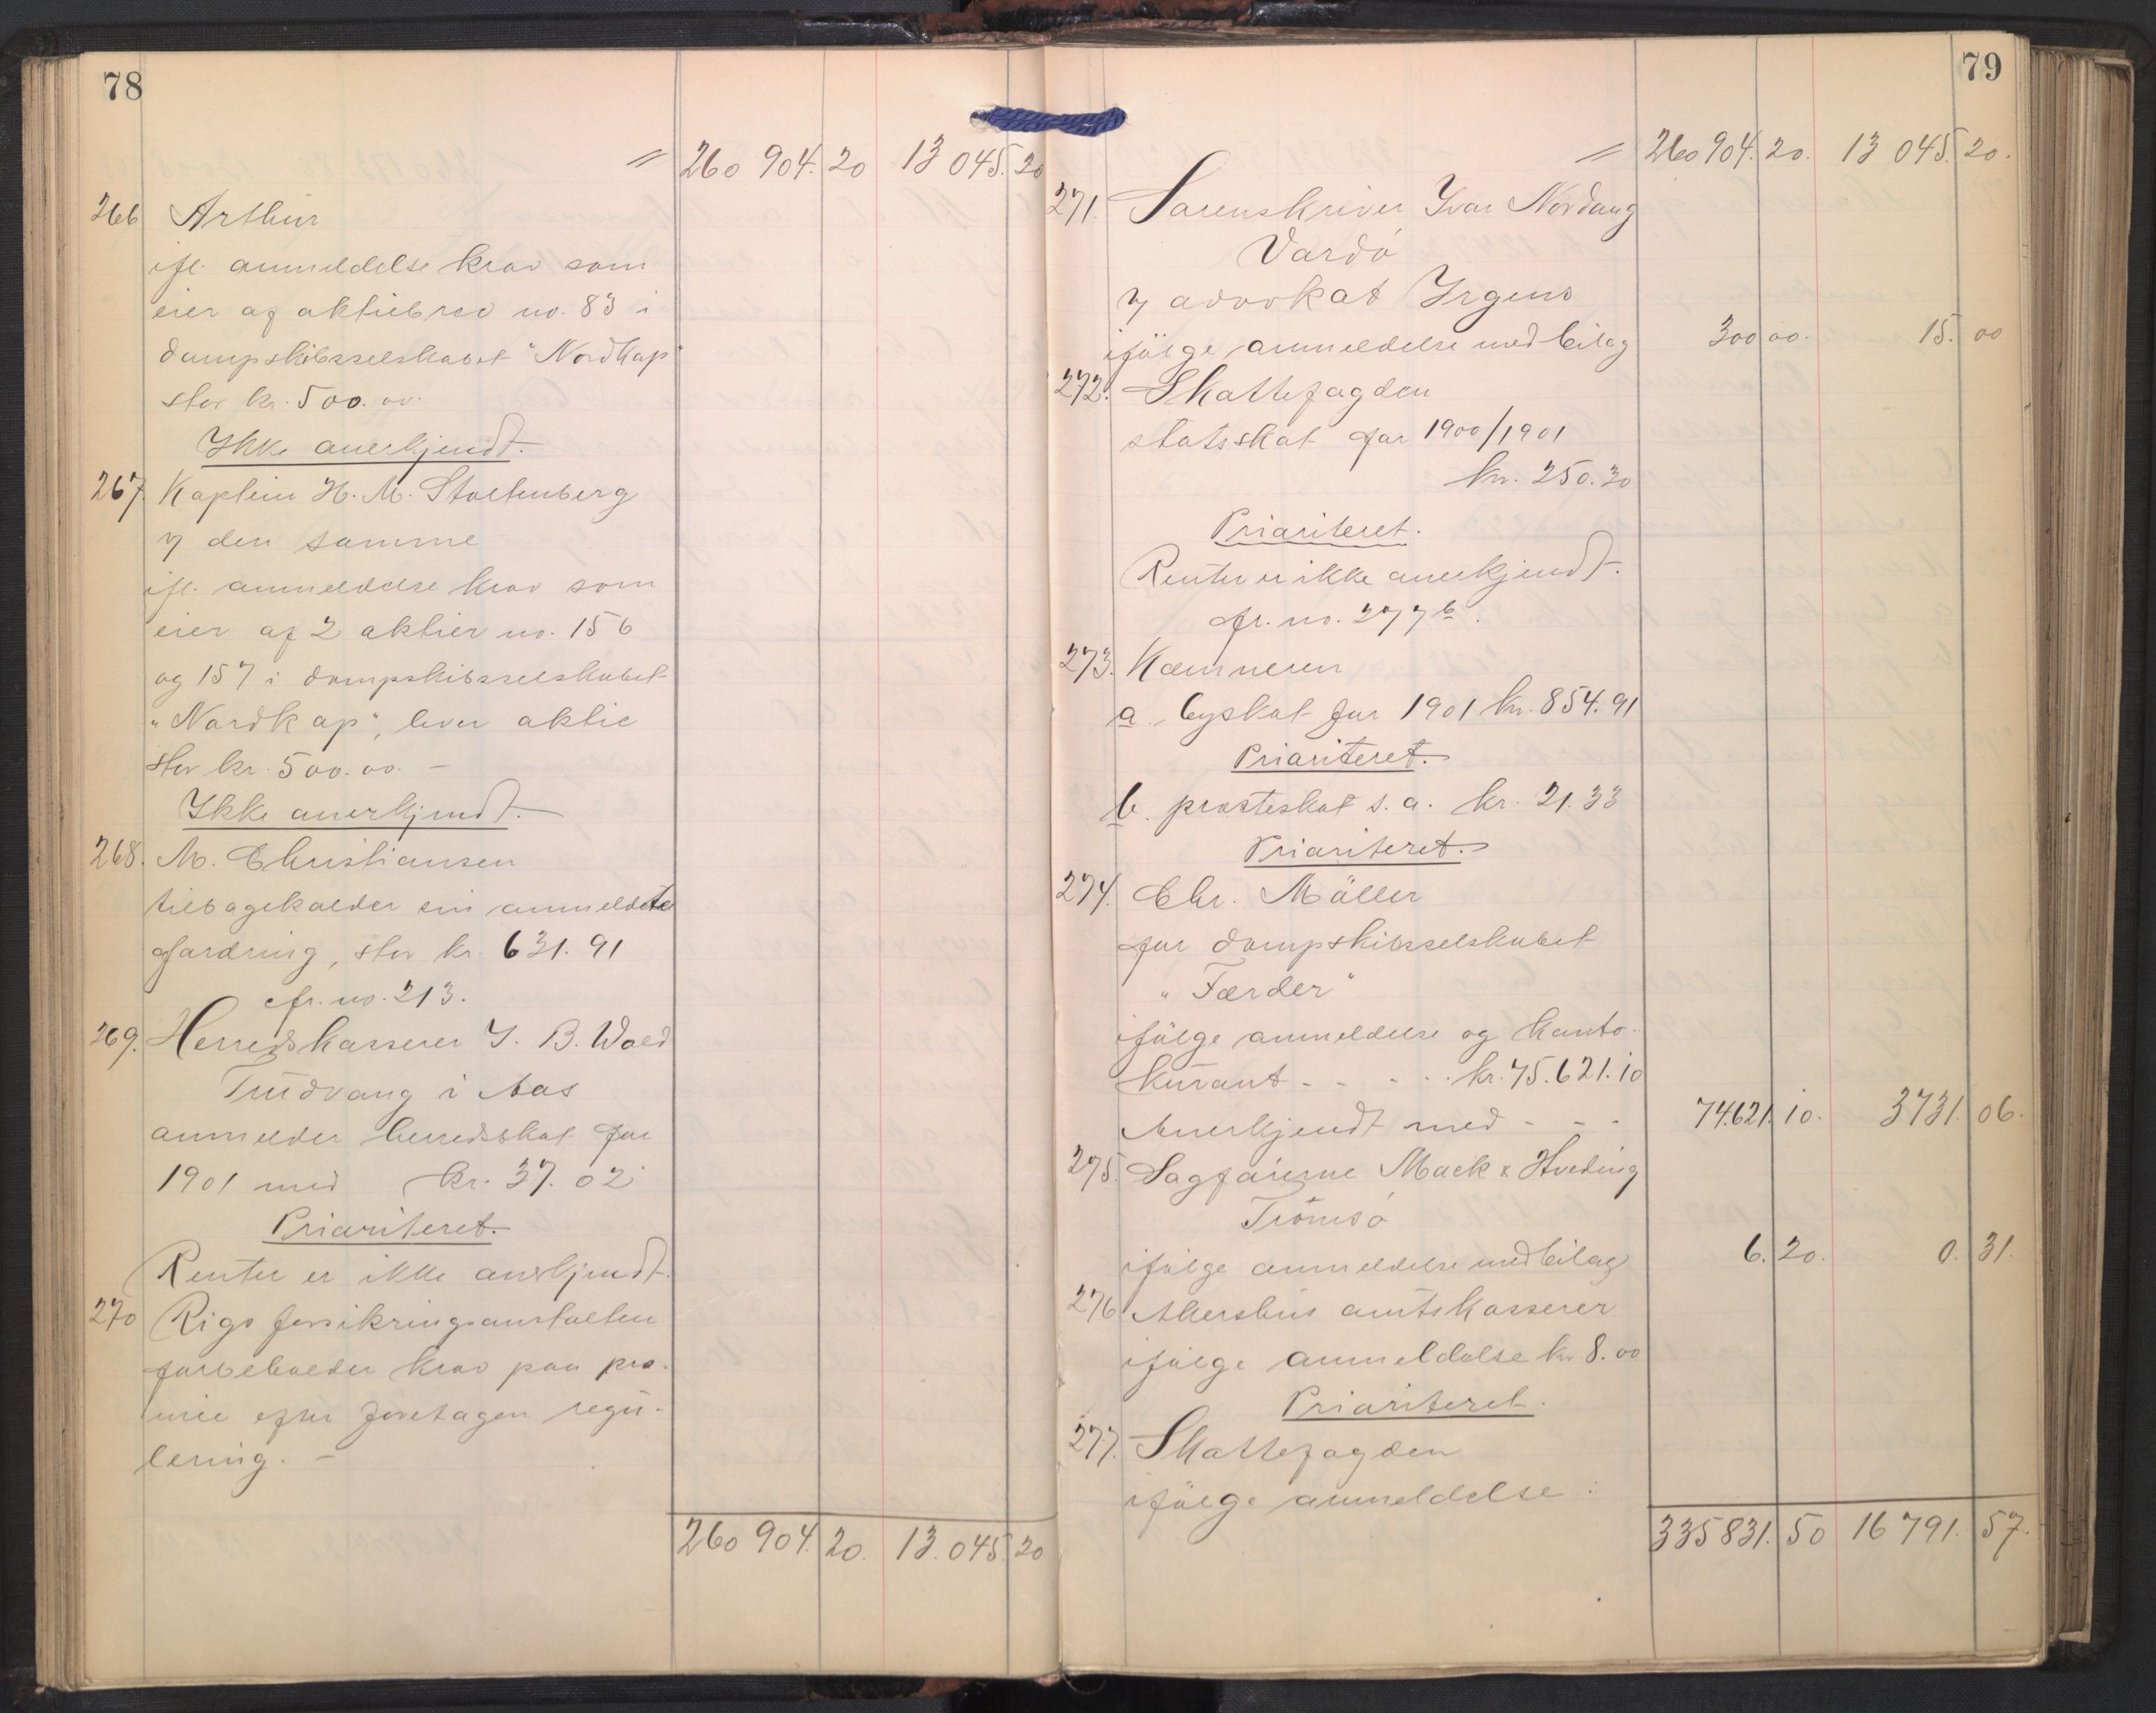 78
〃 260 904. 20 13 045. 20
266 Arthur
ifl. anmeldelse krav som
eier af aktiebrev no. 83 i
dampskibsselskabet "Nordkap"
stor kr. 500. 00.
Ikke anerkjendt.
267. Kaptein H. M. Stoltenberg
v/ den samme
ifl. anmeldelse krav som
eier af 2 aktier no. 156
og 157 i dampskibsselskabet
"Nordkap", hver aktie
stor kr. 500. 00. –
Ikke anerkjendt.
268. M. Christiansen
tilbagekalder sin anmeldte
fordring, stor kr. 631. 91
cfr. no. 213.
269. Herredskasserer J. B. Wold
Trudvang i Aas
anmelder herredsskat for
1901 med kr. 37. 02
Prioriteret.
Renter er ikke anerkjendt.
270 Rigsforsikringsanstalten
forbeholder krav paa præ-
mie efter foretagen regu-
lering. –
260 904. 20. 13. 045. 20
79
〃 260 904. 20. 13 045. 20.
271. Sorenskriver Ivar Nordang
Vardö
v/ advokat Irgens
ifölge anmeldelse med bilag 300 00. 15. 00
272. Skattefogden
statsskat for 1900/1901
kr. 250. 30
Prioriteret.
Renter er ikke anerkjendt.
cfr. no. 277 b.
273. Kæmneren
a. byskat for 1901 kr. 854. 91
Prioriteret.
b. præsteskat s. a. kr. 21. 33
Prioriteret.
274. Chr. Möller
for dampskibsselskabet
"Færder"
ifölge anmeldelse og konto-
kurant - - - - kr. 75. 621. 10
Anerkjendt med - - - 74.621. 10. 3731. 06.
275. Sagförerne Mack & Hveding
Tromsö
ifölge anmeldelse med bilag 6. 20. 0. 31.
276 Akershus amtskasserer
ifölge anmeldelse kr 8. 00
Prioriteret.
277. Skattefogden
ifölge anmeldelse :
335 831. 50 16 791. 57.